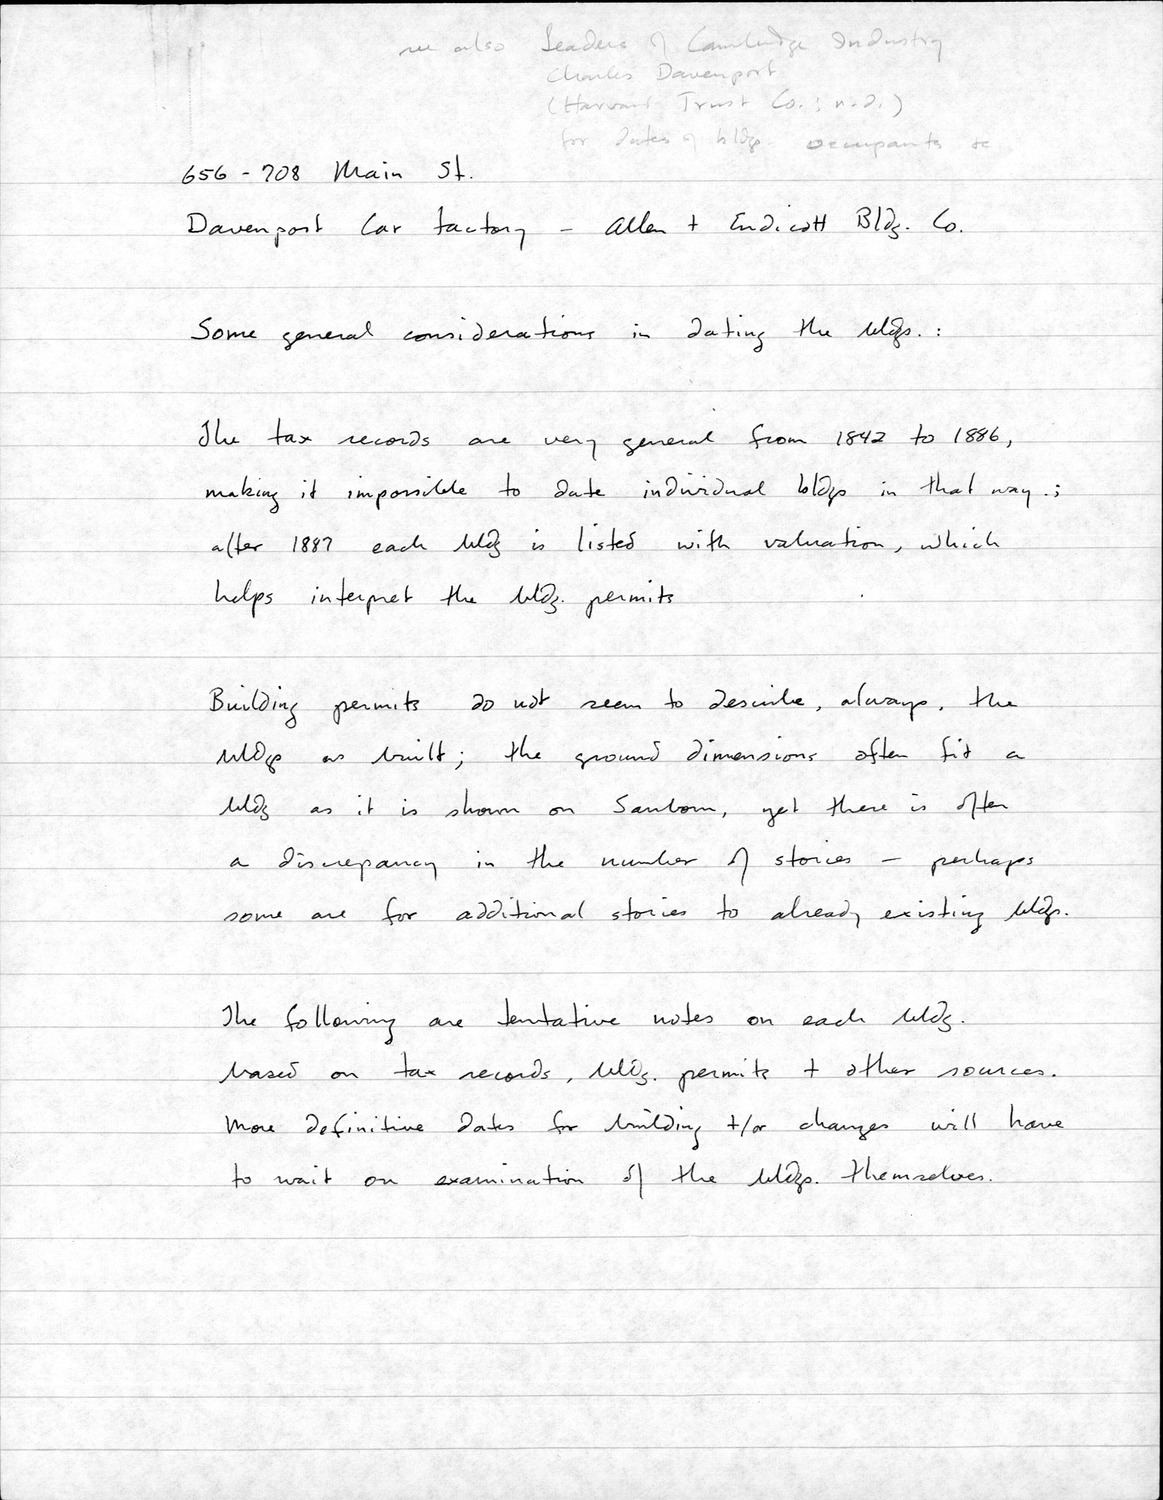 see also Leaders of Cambridge Industry
Charles Davenport
(Harvard Trust Co.; n.d.)
for dates of bldgs. occupants etc
656 - 708 Main St.
Davenport Car Factory - Allen + Endicott Bldg. Co.
Some general considerations in dating the bldgs. :
The tax records are very general from 1842 to 1886,
making it impossible to date individual bldgs in that way.;
after 1887 each bldg is listed with valuation, which
helps interpret the bldg. permits
Building permits do not seem to describe, always, the
bldgs as built; the ground dimensions often fit a
bldg as it is shown on Sanborn, yet there is often
a discrepancy in the number of stories - perhaps
some are for additional stories to already existing bldgs.
The following are tentative notes on each bldg.
based on tax records, bldg. permits + other sources.
More definitive dates for building +/or changes will have
to wait on examination of the bldgs. themselves.